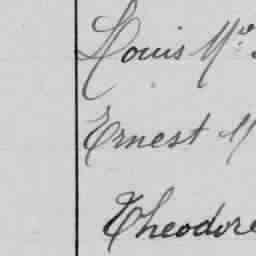 Louis Mc
Ernest M
Theodore